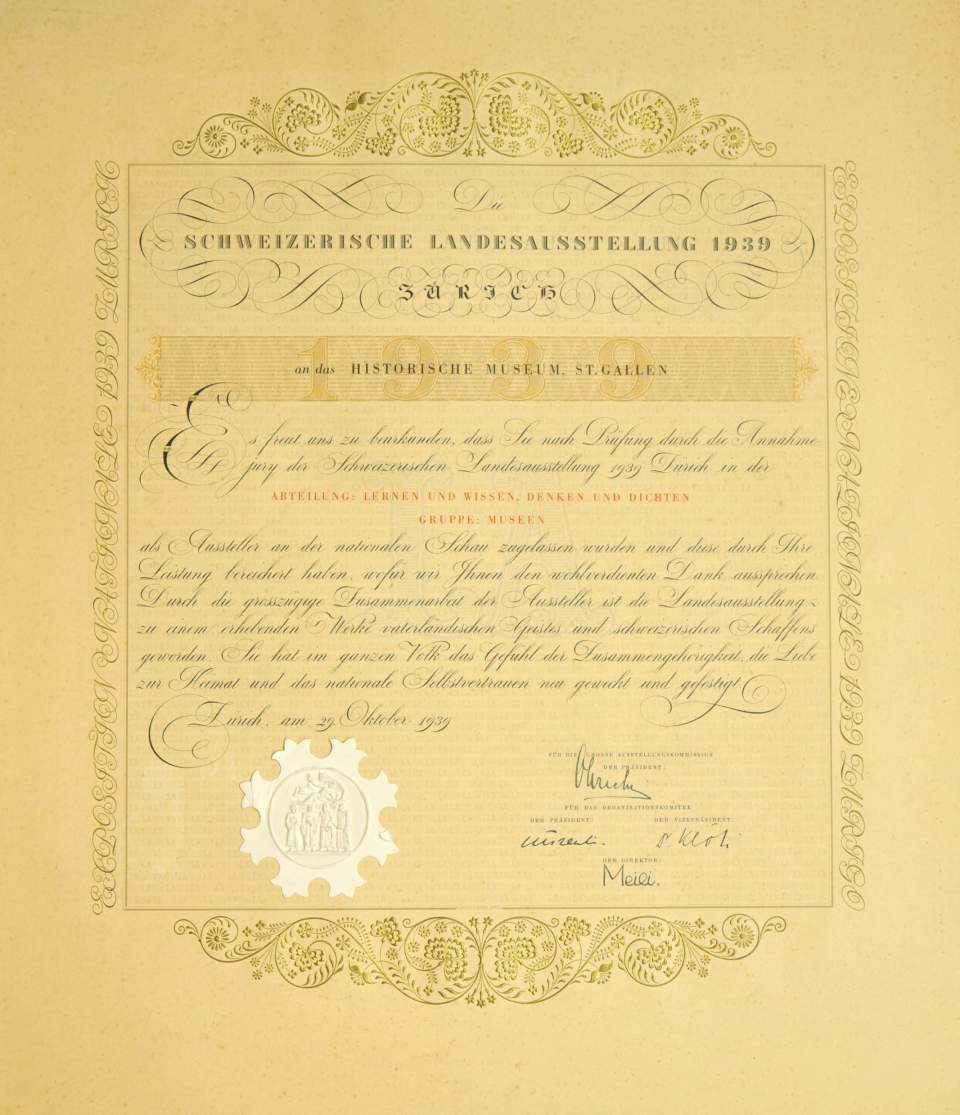 Die
SCHWEIZERISCHE LANDESAUSSTELLUNG 1939
ZÜRICH
1939
an das HISTORISCHE MUSEUM, ST. GALLEN
Es freut uns zu beurkunden, dass Sie nach Prüfung durch die Annahme
jury der Schweizerischen Landesausstellung 1939 Zürich in der
ABTEILUNG: LERNEN UND WISSEN, DENKEN UND DICHTEN
GRUPPE: MUSEEN
als Aussteller an der nationalen Schau zugelassen wurden und diese durch Ihre
Leistung bereichert haben, wofür wir Ihnen den wohlverdienten Dank aussprechen.
Durch die grosszügige Zusammenarbeit der Aussteller ist die Landesausstellung
zu einem erhebenden Werke vaterländischen Geistes und schweizerischen Schaffens
geworden. Sie hat im ganzen Volk das Gefühl der Zusammengehörigkeit, die Liebe
zur Heimat und das nationale Selbstvertrauen neu geweckt und gefestigt.
Zürich, am 29. Oktober 1939
FÜR DIE GROSSE AUSSTELLUNGSKOMMISSION
DER PRÄSIDENT:
FÜR DAS ORGANISATIONSKOMITEE
DER PRÄSIDENT: DER VIZEPRÄSIDENT:
Dr. Klöti
DER DIREKTOR:
Meili.
EXPOSITION NATIONALE 1939 ZURICH
ESPOSIZIONE NAZIONALE 1939 ZURIGO